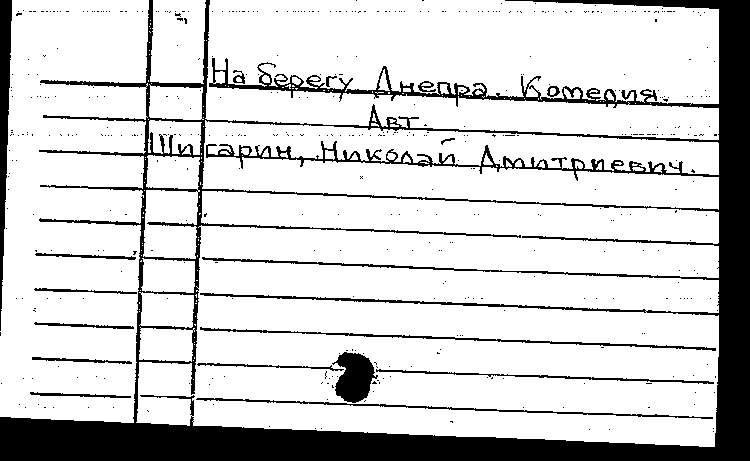 На берегу Днепра. Комедия.
Авт.
Шигарин, Николай Дмитриевич.